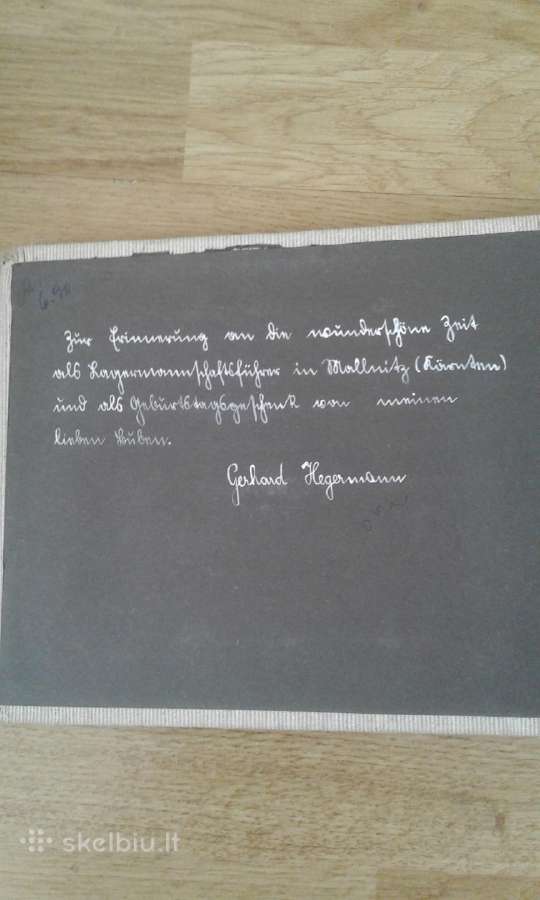 Zur Erinnerung an die wunderschöne Zeit
als Lagermannschaftsführer in Mallnitz (Kärnten)
und als Geburtstagsgeschenk von meinen
lieben Buben.
Gerhard Hegermann
skelbiu.lt